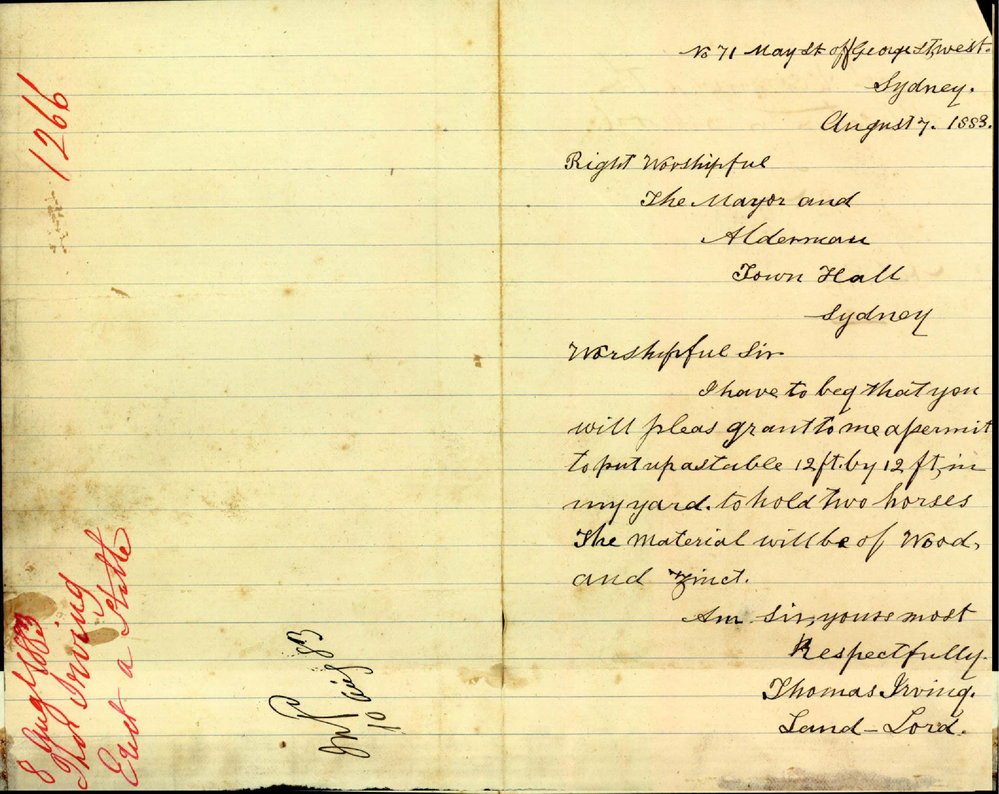 No 71 May St off George St, west.
Sydney.
August 7. 1883.
Right Worshipful
The Mayor and
Alderman
Town Hall
Sydney
Worshipful Sir
I have to beg that you
will pleas grant to me a permit
to put up a stable 12 ft. by 12 ft, in
my yard. to hold two horses
The material will be of Wood,
and Zinct.
Am Sir, yours most
Respectfully.
Thomas Irving.
Land-Lord.
1266
8 Augt 1883
Thos Irving
Erect a Stable
10 Aug 83